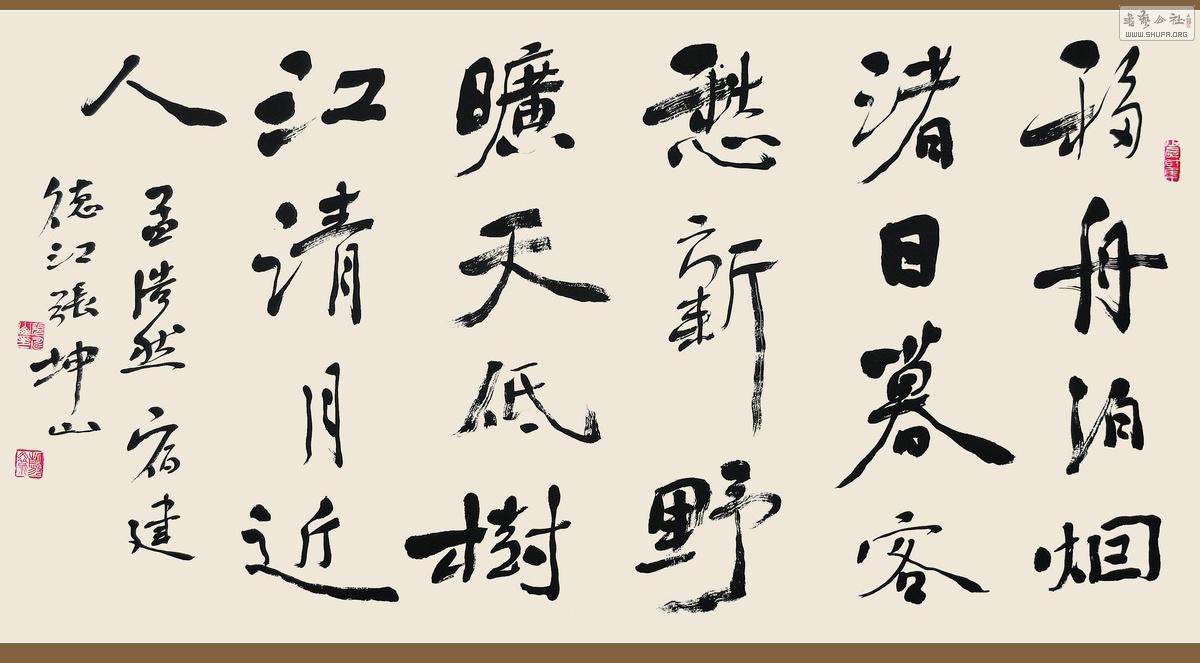 移舟泊烟
渚日暮客
愁新野
曠天低樹
江清月近
人
孟浩然宿建
德江張坤山
WWW.SHUFA.ORG